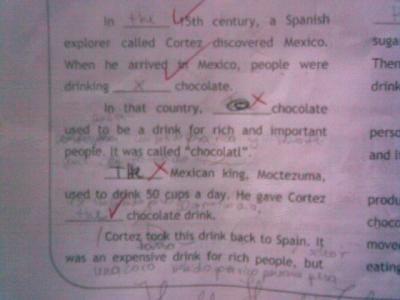 In the 15th century, a Spanish
explorer called Cortez discovered Mexico.
When he arrived in Mexico, people were
drinking x chocolate.
In that country, chocolate
used to be a drink for rich and important
people. It was called "chocolatl".
The Mexican king, Moctezuma,
used to drink 50 cups a day. He gave Cortez
the chocolate drink.
Cortez took this drink back to Spain. It
was an expensive drink for rich people, but
suga
Then
drink
perso
and it
produ
choco
move
eating